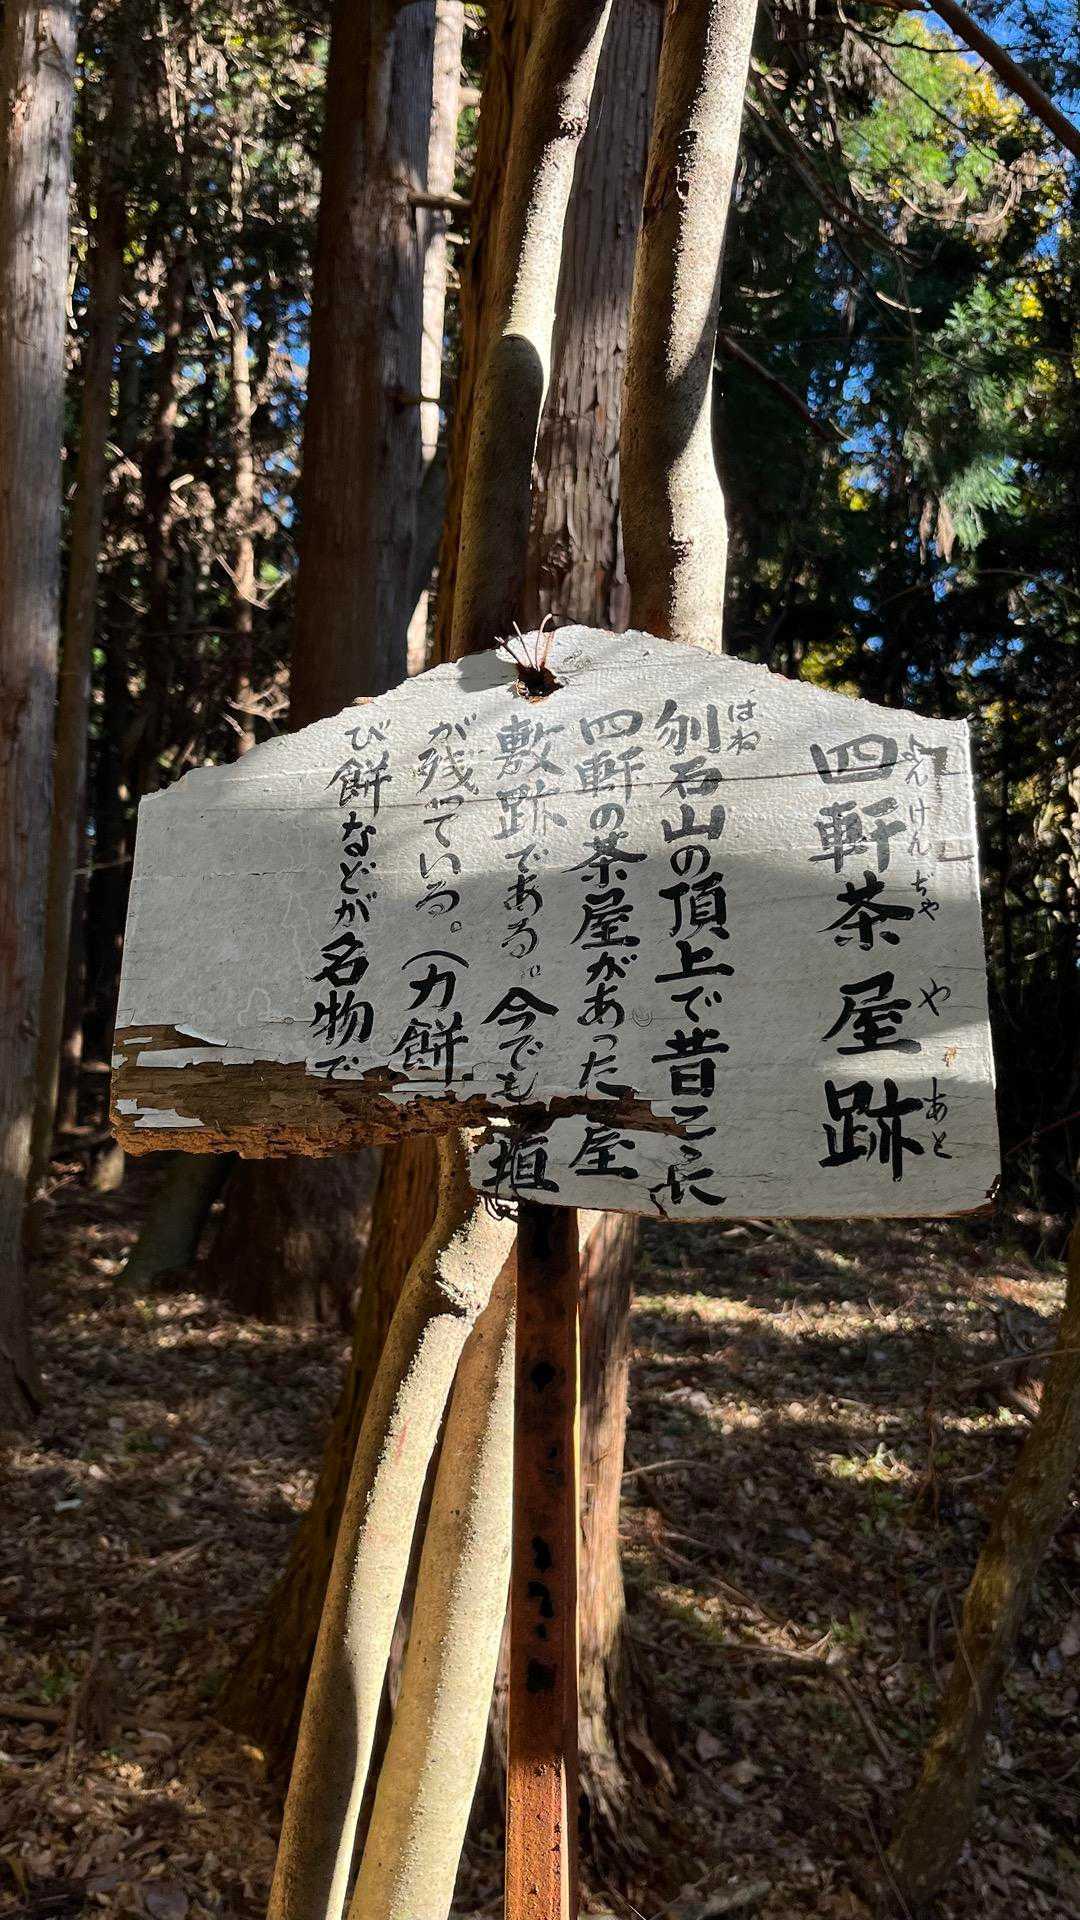 四軒茶屋跡
よんけんぢゃやあと
はね
刎石山の頂上で昔ここに
四軒の茶屋があった屋
敷跡である。今でも石垣
が残っている。(力餅
び餅などが名物で